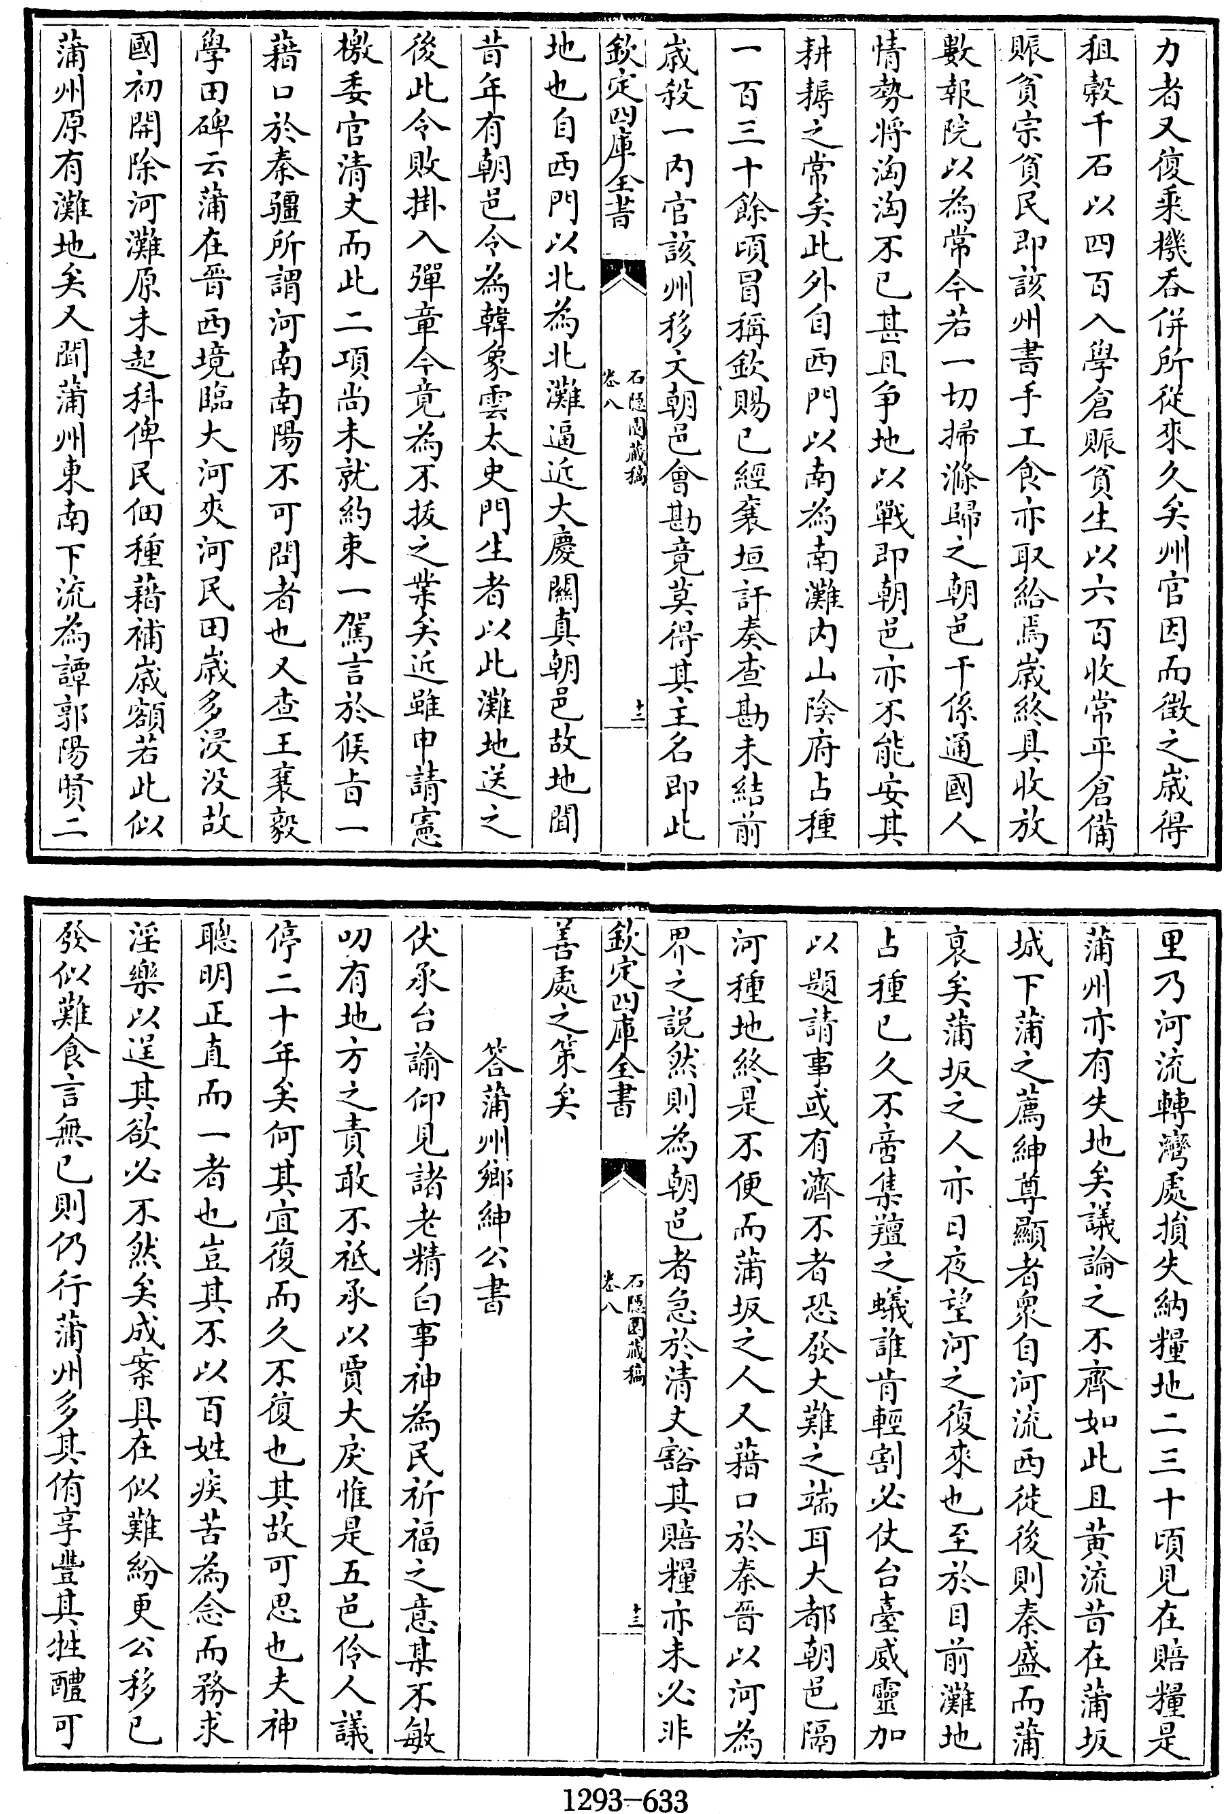 力者又復乘機吞併所從來久矣州官因而徵之歲得
租穀千石以四百入學倉賑貧生以六百收常平倉備
賑貧宗貧民即該州書手工食亦取給焉歲終具收放
數報院以為常今若一切掃滌歸之朝邑干係通國人
情勢將洶洶不已甚且爭地以戰即朝邑亦不能安其
耕耨之常矣此外自西門以南為南灘内山陰府占種
一百三十餘頃冒稱欽賜已經襄垣訐奏查勘未結前
歲殺一内官該州移文朝邑會勘竟莫得其主名即此
欽定四庫全書
石隱園藏稿
卷八
十二
地也自西門以北為北灘逼近大慶關真朝邑故地聞
昔年有朝邑令為韓象雲太史門生者以此灘地送之
後此令敗掛入彈章今竟為不拔之業矣近雖申請憲
檄委官清丈而此二項尚未就約束一駕言於候旨一
藉口於秦疆所謂河南南陽不可問者也又查王襄毅
學田碑云蒲在晉西境臨大河夾河民田歲多浸没故
國初開除河灘原未起科俾民佃種藉補歲額若此似
蒲州原有灘地矣又聞蒲州東南下流為譚郭陽賢二
里乃河流轉灣處損失納糧地二三十頃見在賠糧是
蒲州亦有失地矣議論之不齊如此且黄流昔在蒲坂
城下蒲之薦紳尊顯者衆自河流西徙後則秦盛而蒲
衰矣蒲坂之人亦日夜望河之復來也至於目前灘地
占種已久不啻集羶之蟻誰肯輕割必仗台臺威靈加
以題請事或有濟不者恐發大難之端耳大都朝邑隔
河種地終是不便而蒲坂之人又藉口於秦晉以河為
界之説然則為朝邑者急於清丈豁其賠糧亦未必非
欽定四庫全書
石隱園藏稿
卷八
十三
善處之策矣
答蒲州鄉紳公書
伏承台諭仰見諸老精白事神為民祈福之意某不敏
叨有地方之責敢不祗承以賈大戾惟是五邑伶人議
停二十年矣何其宜復而久不復也其故可思也夫神
聰明正直而一者也豈其不以百姓疾苦為念而務求
淫樂以逞其欲必不然矣成案具在似難紛更公移已
發似難食言無已則仍行蒲州多其侑享豐其牲醴可
1293-633